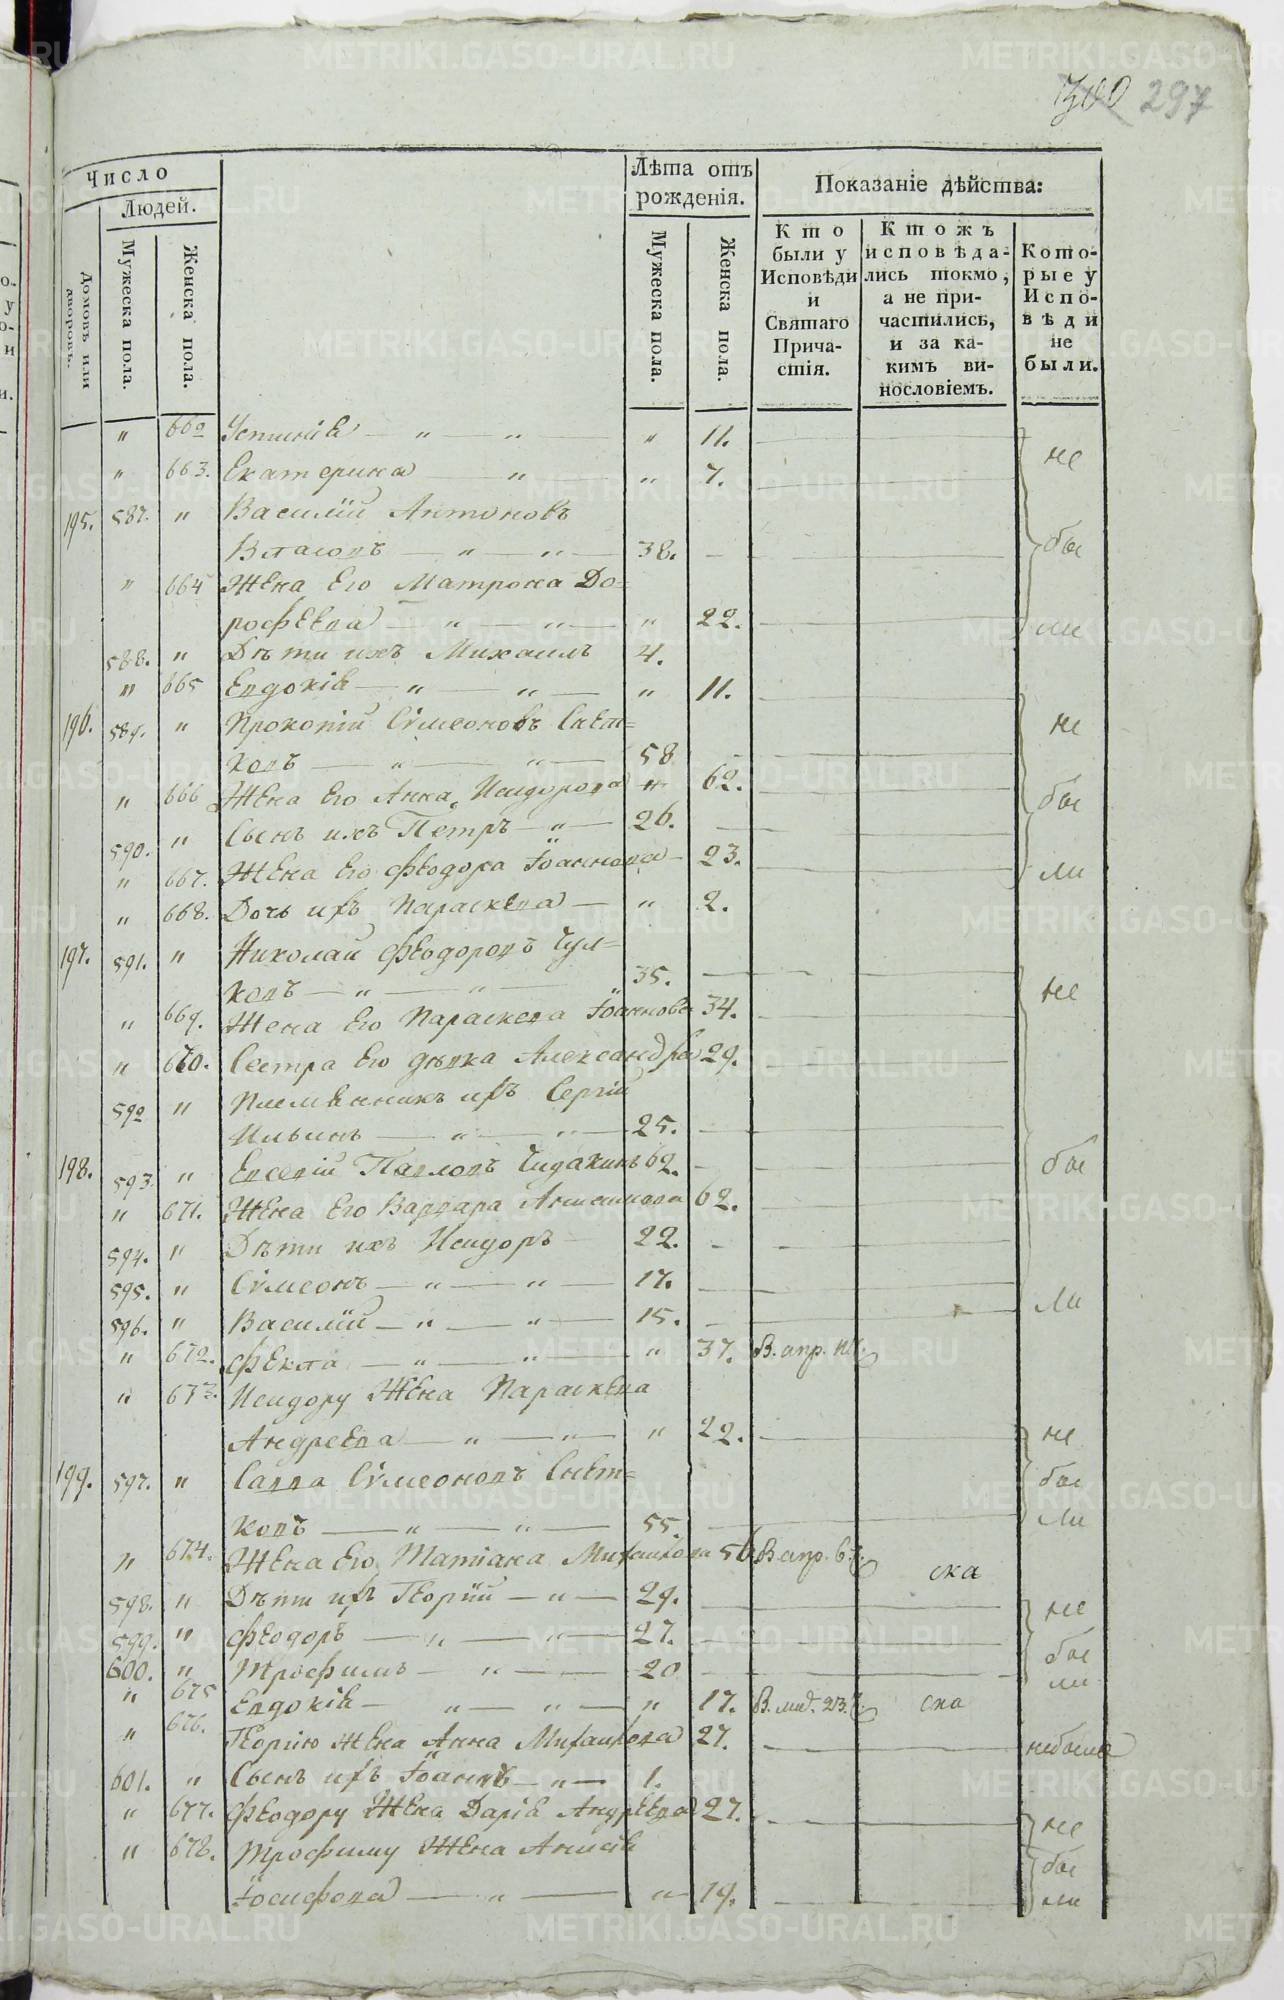 300 297
Число
Людей.
Домовъ или дворовъ.
Мужеска пола.
Женска пола.
Лѣта отъ рожденія.
Мужеска пола.
Женска пола.
Показаніе дѣйства:
Кто были у Исповѣди и Святаго Прича-стія.
Ктожъ исповѣда-лись токмо, а не при-частились, и за ка-кимъ ви-нословіемъ.
Кото-рые у Испо-вѣди не были.
" 662 Устинія — " — " — " 11.
" 663. Екатерина — " — " 7. не
195. 587. " Василій Антоновъ
Власовъ — " — " — 38. — бы
" 664 Жена Его Матрона До=
рофѣева — " — " — " 22. ли
588. " Дѣти ихъ Михаилъ 4.
" 665 Евдокія — " — " — " 11.
196. 589. " Прокопій Сѵмеоновъ Снѣт= не
ковъ — " — " — 58
" 666 Жена Его Анна Исидорова " 62. бы
590. " Сынъ ихъ Петръ — " — 26.
" 667. Жена Его Ѳеодора Іоаннова — 23. ли
" 668. Дочь ихъ Параскева — " 2.
197. 591. " Николай Ѳеодоровъ Чул=
ковъ — " — " — 35. не
" 669. Жена Его Параскева Іоаннова 34.
" 670. Сестра Его дѣвка Александра 29.
592 " Племянникъ ихъ Сергій
Ильинъ — " — " — 25.
198. 593. " Евсевій Павловъ Чидакинъ 62. бы
" 671. Жена Его Варвара 62.
594. " Дѣти ихъ Исидоръ — 22.
595. " Сѵмеонъ — " — " — 17. ли
596. " Василій — " — " — 15.
" 672. Ѳекла — " — " — " 37. В. апр.
" 673. Исидору Жена Параскева
Андреева — " — " — " 22. не
199. 597. " Савва Сѵмеоновъ Снѣт= бы
ковъ — " — " — 55. ли
" 674. Жена Его Татіана Михаилова 56 В. апр. 63. ска
598. " Дѣти ихъ Георгій — " — 29. не
599. " Ѳеодоръ — " — " — 27. бы
600. " Трофимъ — " — 20 ли
" 675 Евдокія — " — " — " 17. В. 213. ска
" 676. Георгію Жена Анна Михаилова 27. небыла
601. " Сынъ ихъ Іоаннъ — " — 1.
" 677. Ѳеодору Жена Дарія Андреева 27. не
" 678. Трофиму Жена Анисія бы
Іосифова — " — " 19. ли
METRIKI.GASO-URAL.RU